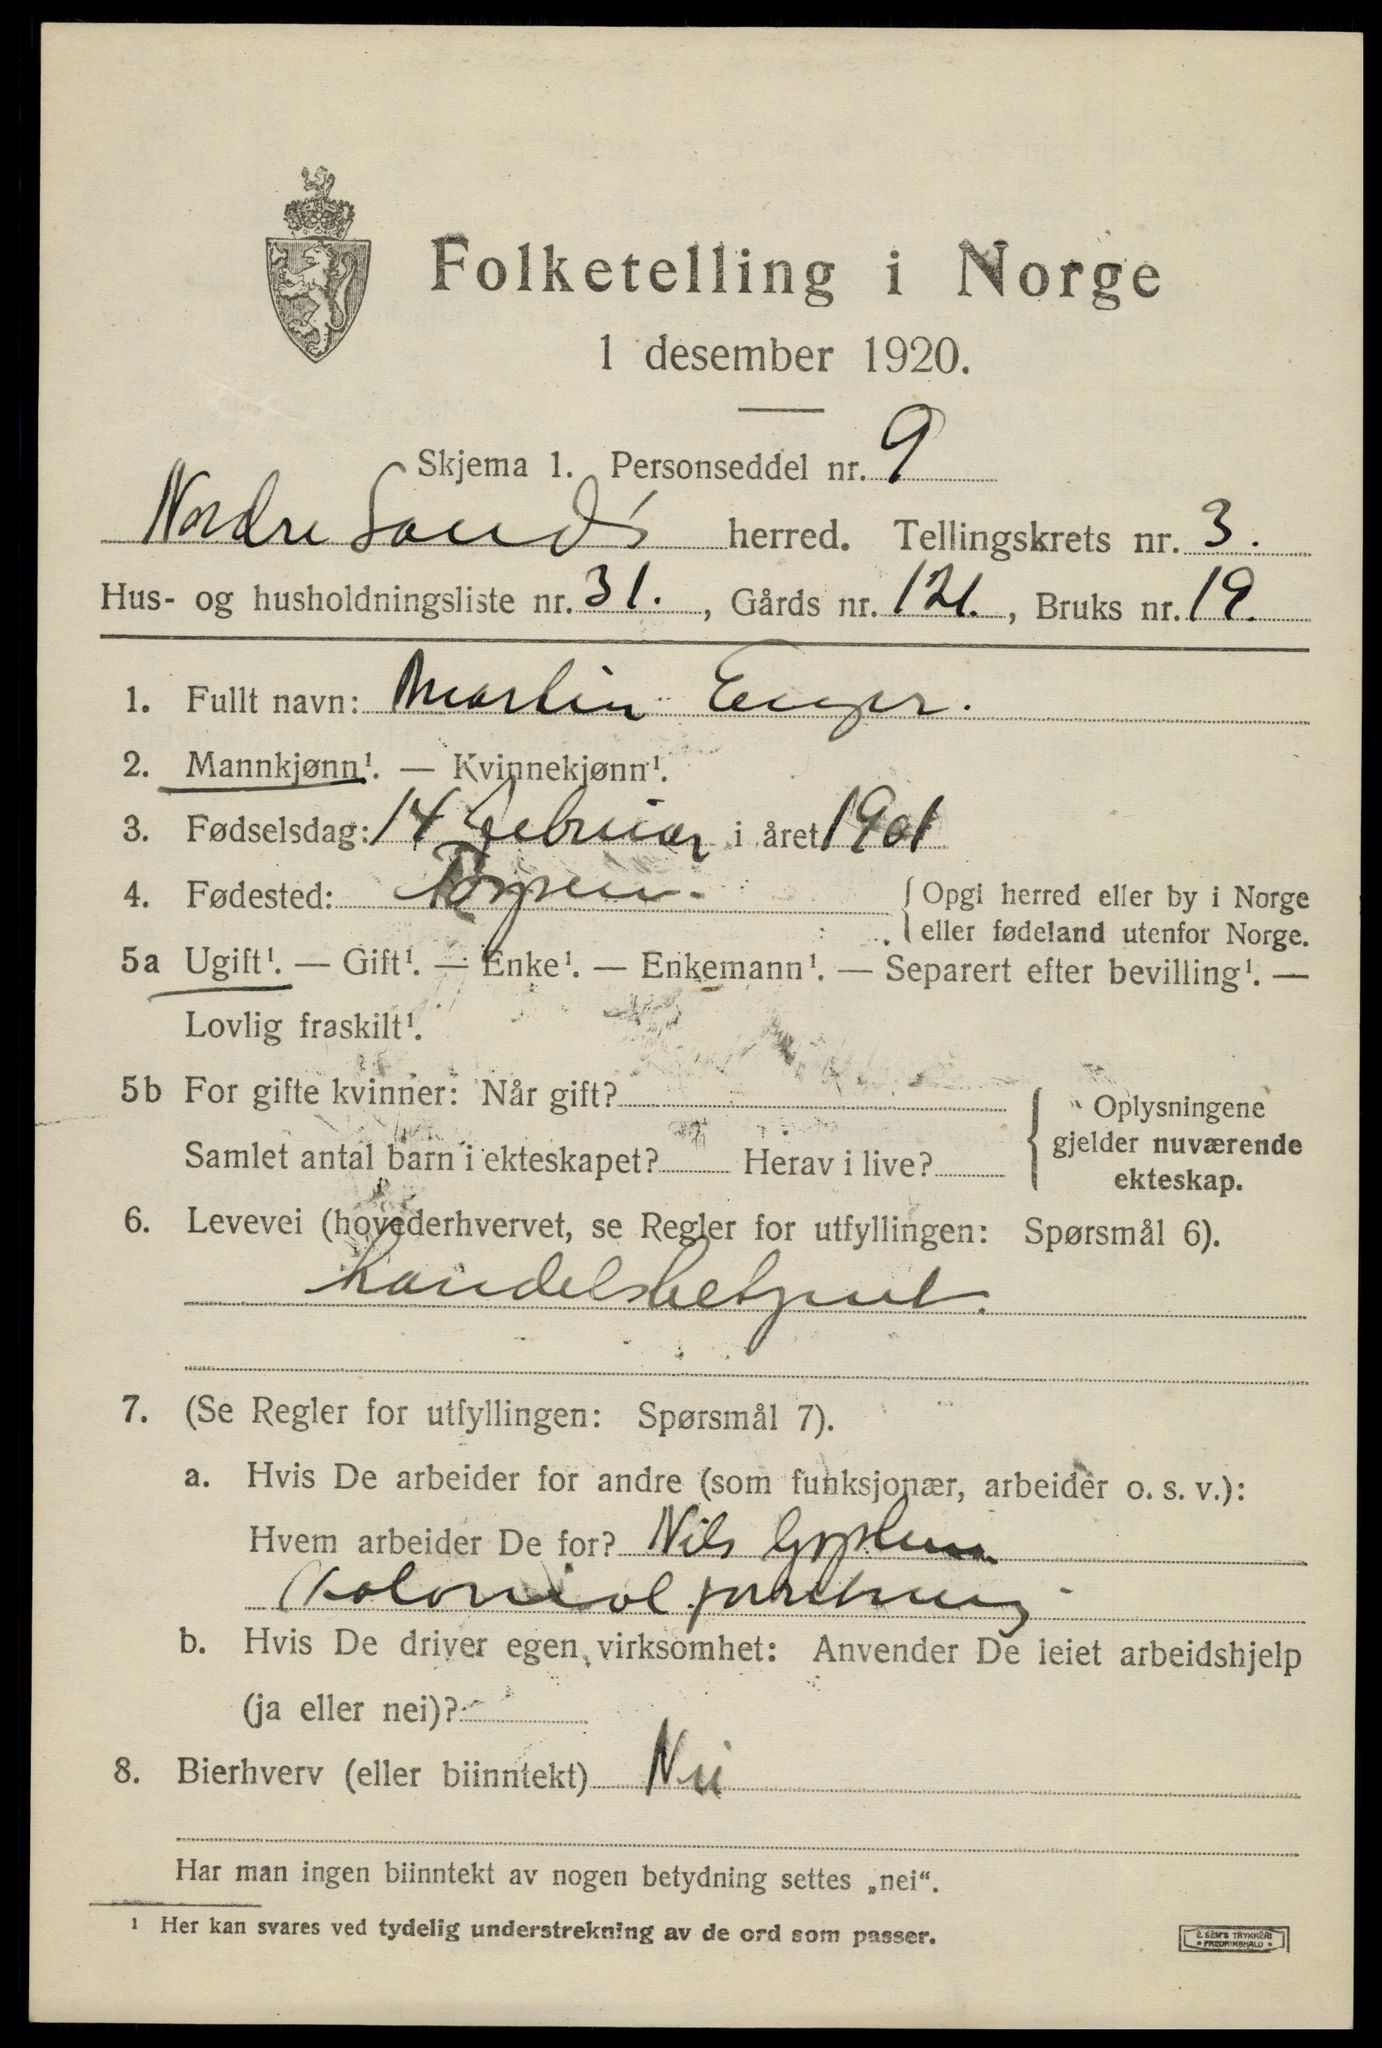 Folketelling i Norge
1 desember 1920.
Skjema 1. Personseddel nr. 9
Nordre Land's herred. Tellingskrets nr. 3.
Hus- og husholdningsliste nr. 31., Gårds nr. 121., Bruks nr. 19.
1. Fullt navn: Martin Enger.
2. Mannkjønn¹. — Kvinnekjønn¹.
3. Fødselsdag: 14 februar i året 1901
4. Fødested: Torpen. { Opgi herred eller by i Norge
eller fødeland utenfor Norge.
5a Ugift¹. — Gift¹. — Enke¹. — Enkemann¹. — Separert efter bevilling¹. —
Lovlig fraskilt¹.
5b For gifte kvinner: Når gift? { Oplysningene
gjelder nuværende
Samlet antal barn i ekteskapet? Herav i live?
ekteskap.
6. Levevei (hovederhvervet, se Regler for utfyllingen: Spørsmål 6).
handelsbetjent.
7. (Se Regler for utfyllingen: Spørsmål 7).
a. Hvis De arbeider for andre (som funksjonær, arbeider o. s. v.):
Hvem arbeider De for? Nils
Kolonial forretning
b. Hvis De driver egen virksomhet: Anvender De leiet arbeidshjelp
(ja eller nei)?
8. Bierhverv (eller biinntekt) Nei
Har man ingen biinntekt av nogen betydning settes „nei“.
¹ Her kan svares ved tydelig understrekning av de ord som passer.
E. SEM'S TRYKKERI
• FREDRIKSHALD •